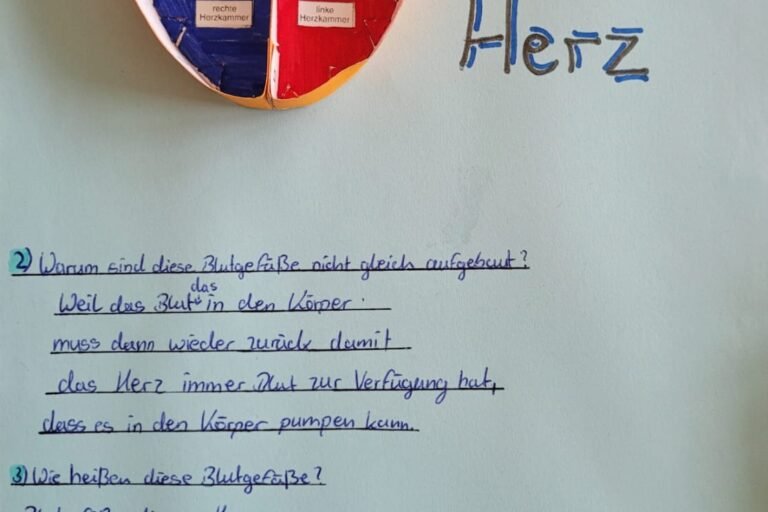 rechte
Herzkammer
linke
Herzkammer
Herz
2) Warum sind diese Blutgefäße nicht gleich aufgebaut?
das
Weil das Blut in den Körper
muss dann wieder zurück damit
das Herz immer Blut zur Verfügung hat,
dass es in den Körper pumpen kann.
3) Wie heißen diese Blutgefäße?